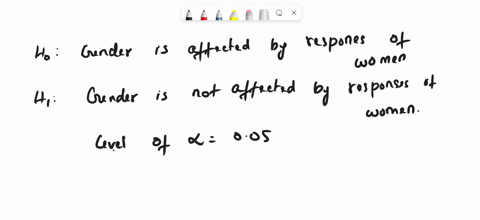 H₀: Gender is affected by respones of women
H₁: Gender is not affected by responses of women.
Level of α = 0.05